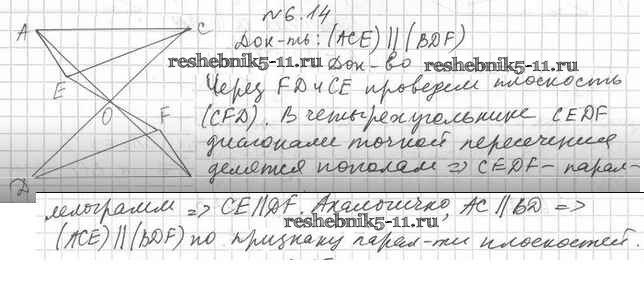 №6.14
A C
Док-ть: (ACE) || (BDF)
reshebnik5-11.ru Док-во reshebnik5-11.ru
Через FD и CE проведем плоскость
E
(CFD). В четырехугольнике CEDF
F
O
диагонали точкой пересечения
делятся пополам => CEDF - парал-
D
лелограмм => CE || DF. Аналогично, AC || BD =>
reshebnik5-11.ru
(ACE) || (BDF) по признаку парал-ти плоскостей.